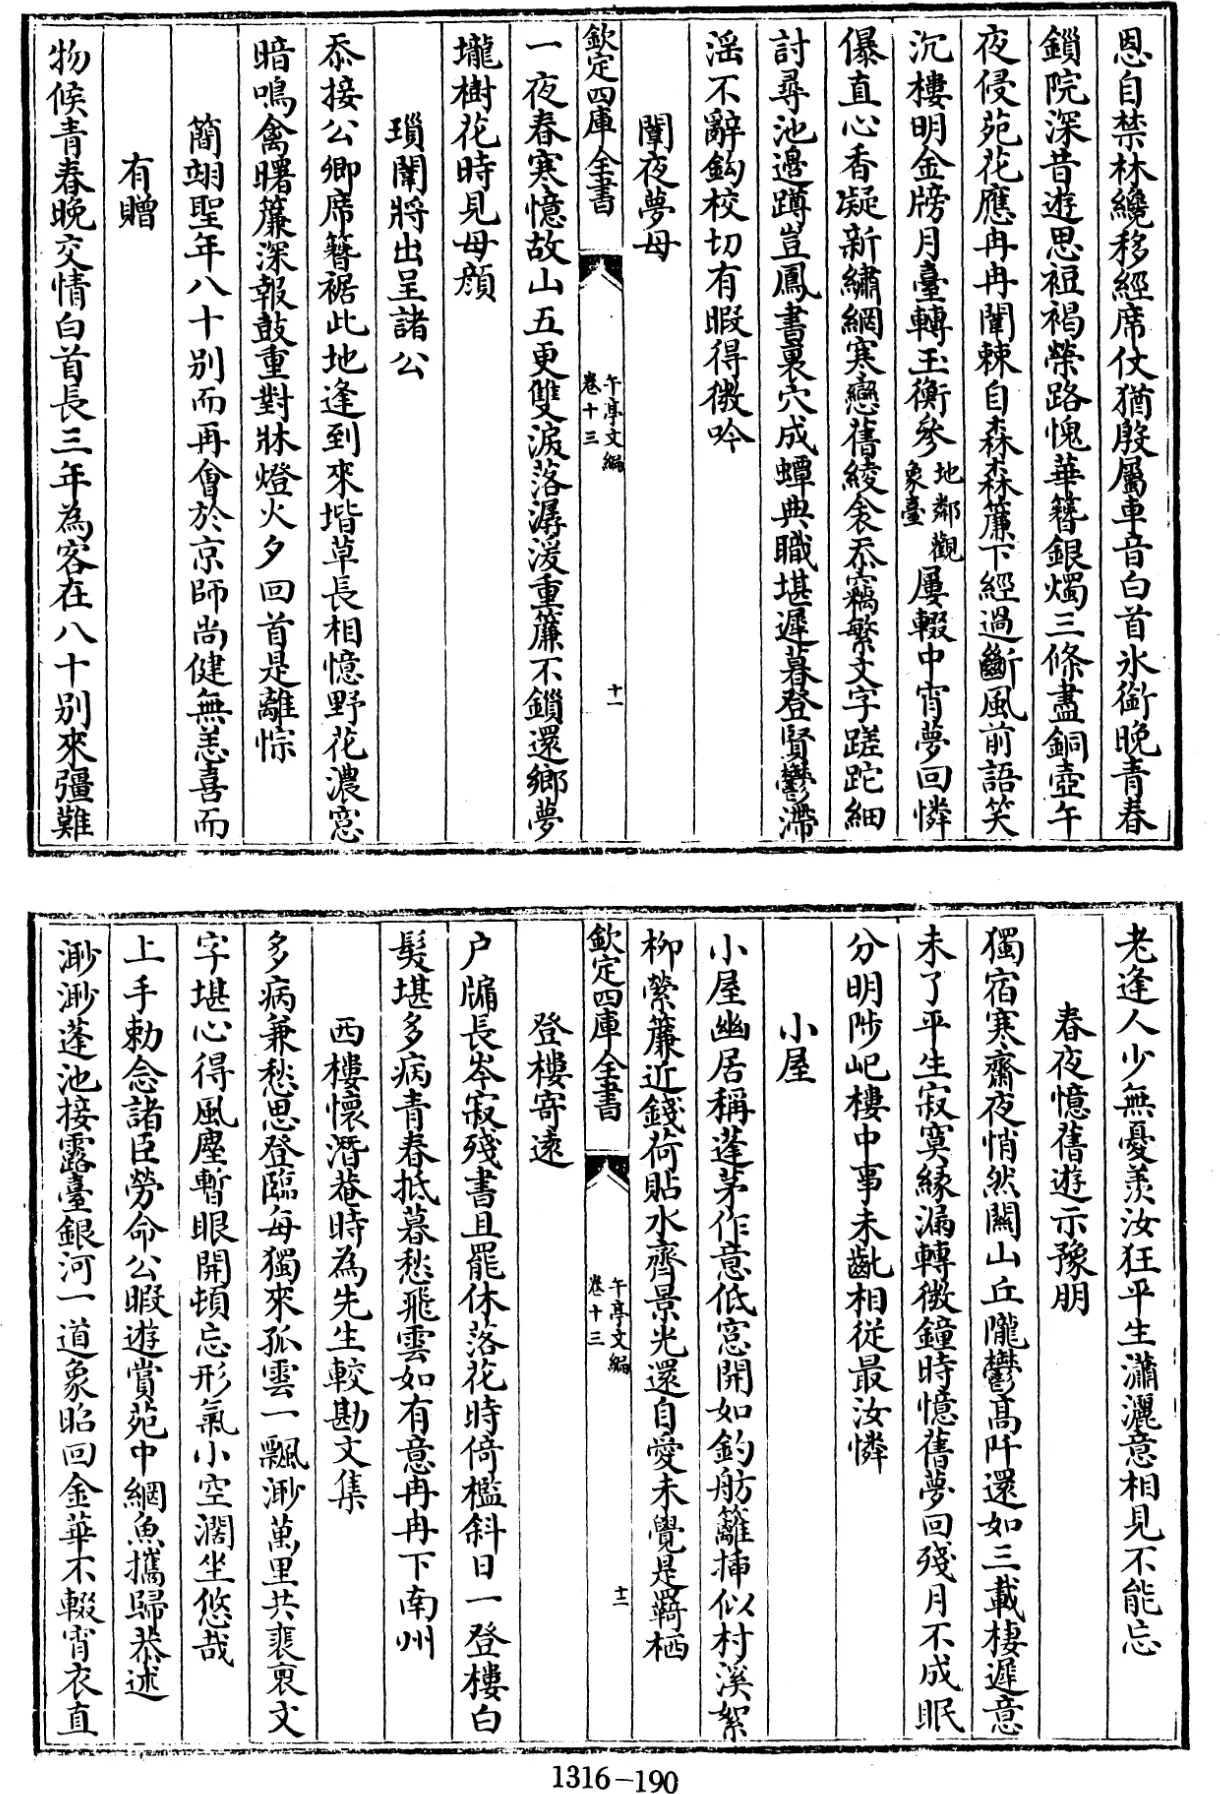 恩自禁林纔移經席仗猶殷屬車音白首氷銜晚青春
鎻院深昔遊思裋褐榮路愧華簪銀燭三條盡銅壺午
夜侵苑花應冉冉闈棘自森森簾下經過斷風前語笑
沉樓明金牓月臺轉玉衡參地鄰觀象臺屢輟中宵夢回憐
儤直心香凝新繡網寒戀舊綾衾忝竊繁文字蹉跎細
討尋池邊蹲豈鳳書裏穴成蟫典職堪遲暮登賢鬱滯
淫不辭鈎校切有暇得微吟
闈夜夢母
欽定四庫全書
午亭文編
卷十三
十一
一夜春寒憶故山五更雙淚落潺湲重簾不鎻還鄉夢
壠樹花時見母顔
瑣闈將出呈諸公
忝接公卿席簪裾此地逢到來堦草長相憶野花濃窓
暗鳴禽曙簾深報鼓重對牀燈火夕回首是離悰
簡翊聖年八十别而再會於京師尚健無恙喜而
有贈
物候青春晚交情白首長三年為客在八十别來彊難
老逢人少無憂羨汝狂平生瀟灑意相見不能忘
春夜憶舊遊示豫朋
獨宿寒齋夜悄然關山丘隴鬱髙阡還如三載棲遲意
未了平生寂寞縁漏轉微鐘時憶舊夢回殘月不成眠
分明陟屺樓中事未齓相從最汝憐
小屋
小屋幽居稱蓬茅作意低窓開如釣舫籬揷似村溪絮
柳縈簾近錢荷貼水齊景光還自愛未覺是羇栖
欽定四庫全書
午亭文編
卷十三
十二
登樓寄遠
户牖長岑寂殘書且罷休落花時倚檻斜日一登樓白
髪堪多病青春抵暮愁飛雲如有意冉冉下南州
西樓懷潛菴時為先生較勘文集
多病兼愁思登臨每獨來孤雲一飄渺萬里共裴裒文
字堪心得風塵暫眼開頓忘形氣小空濶坐悠哉
上手勅念諸臣勞命公暇遊賞苑中網魚攜歸恭述
渺渺蓬池接露臺銀河一道象昭回金華不輟宵衣直
1316-190